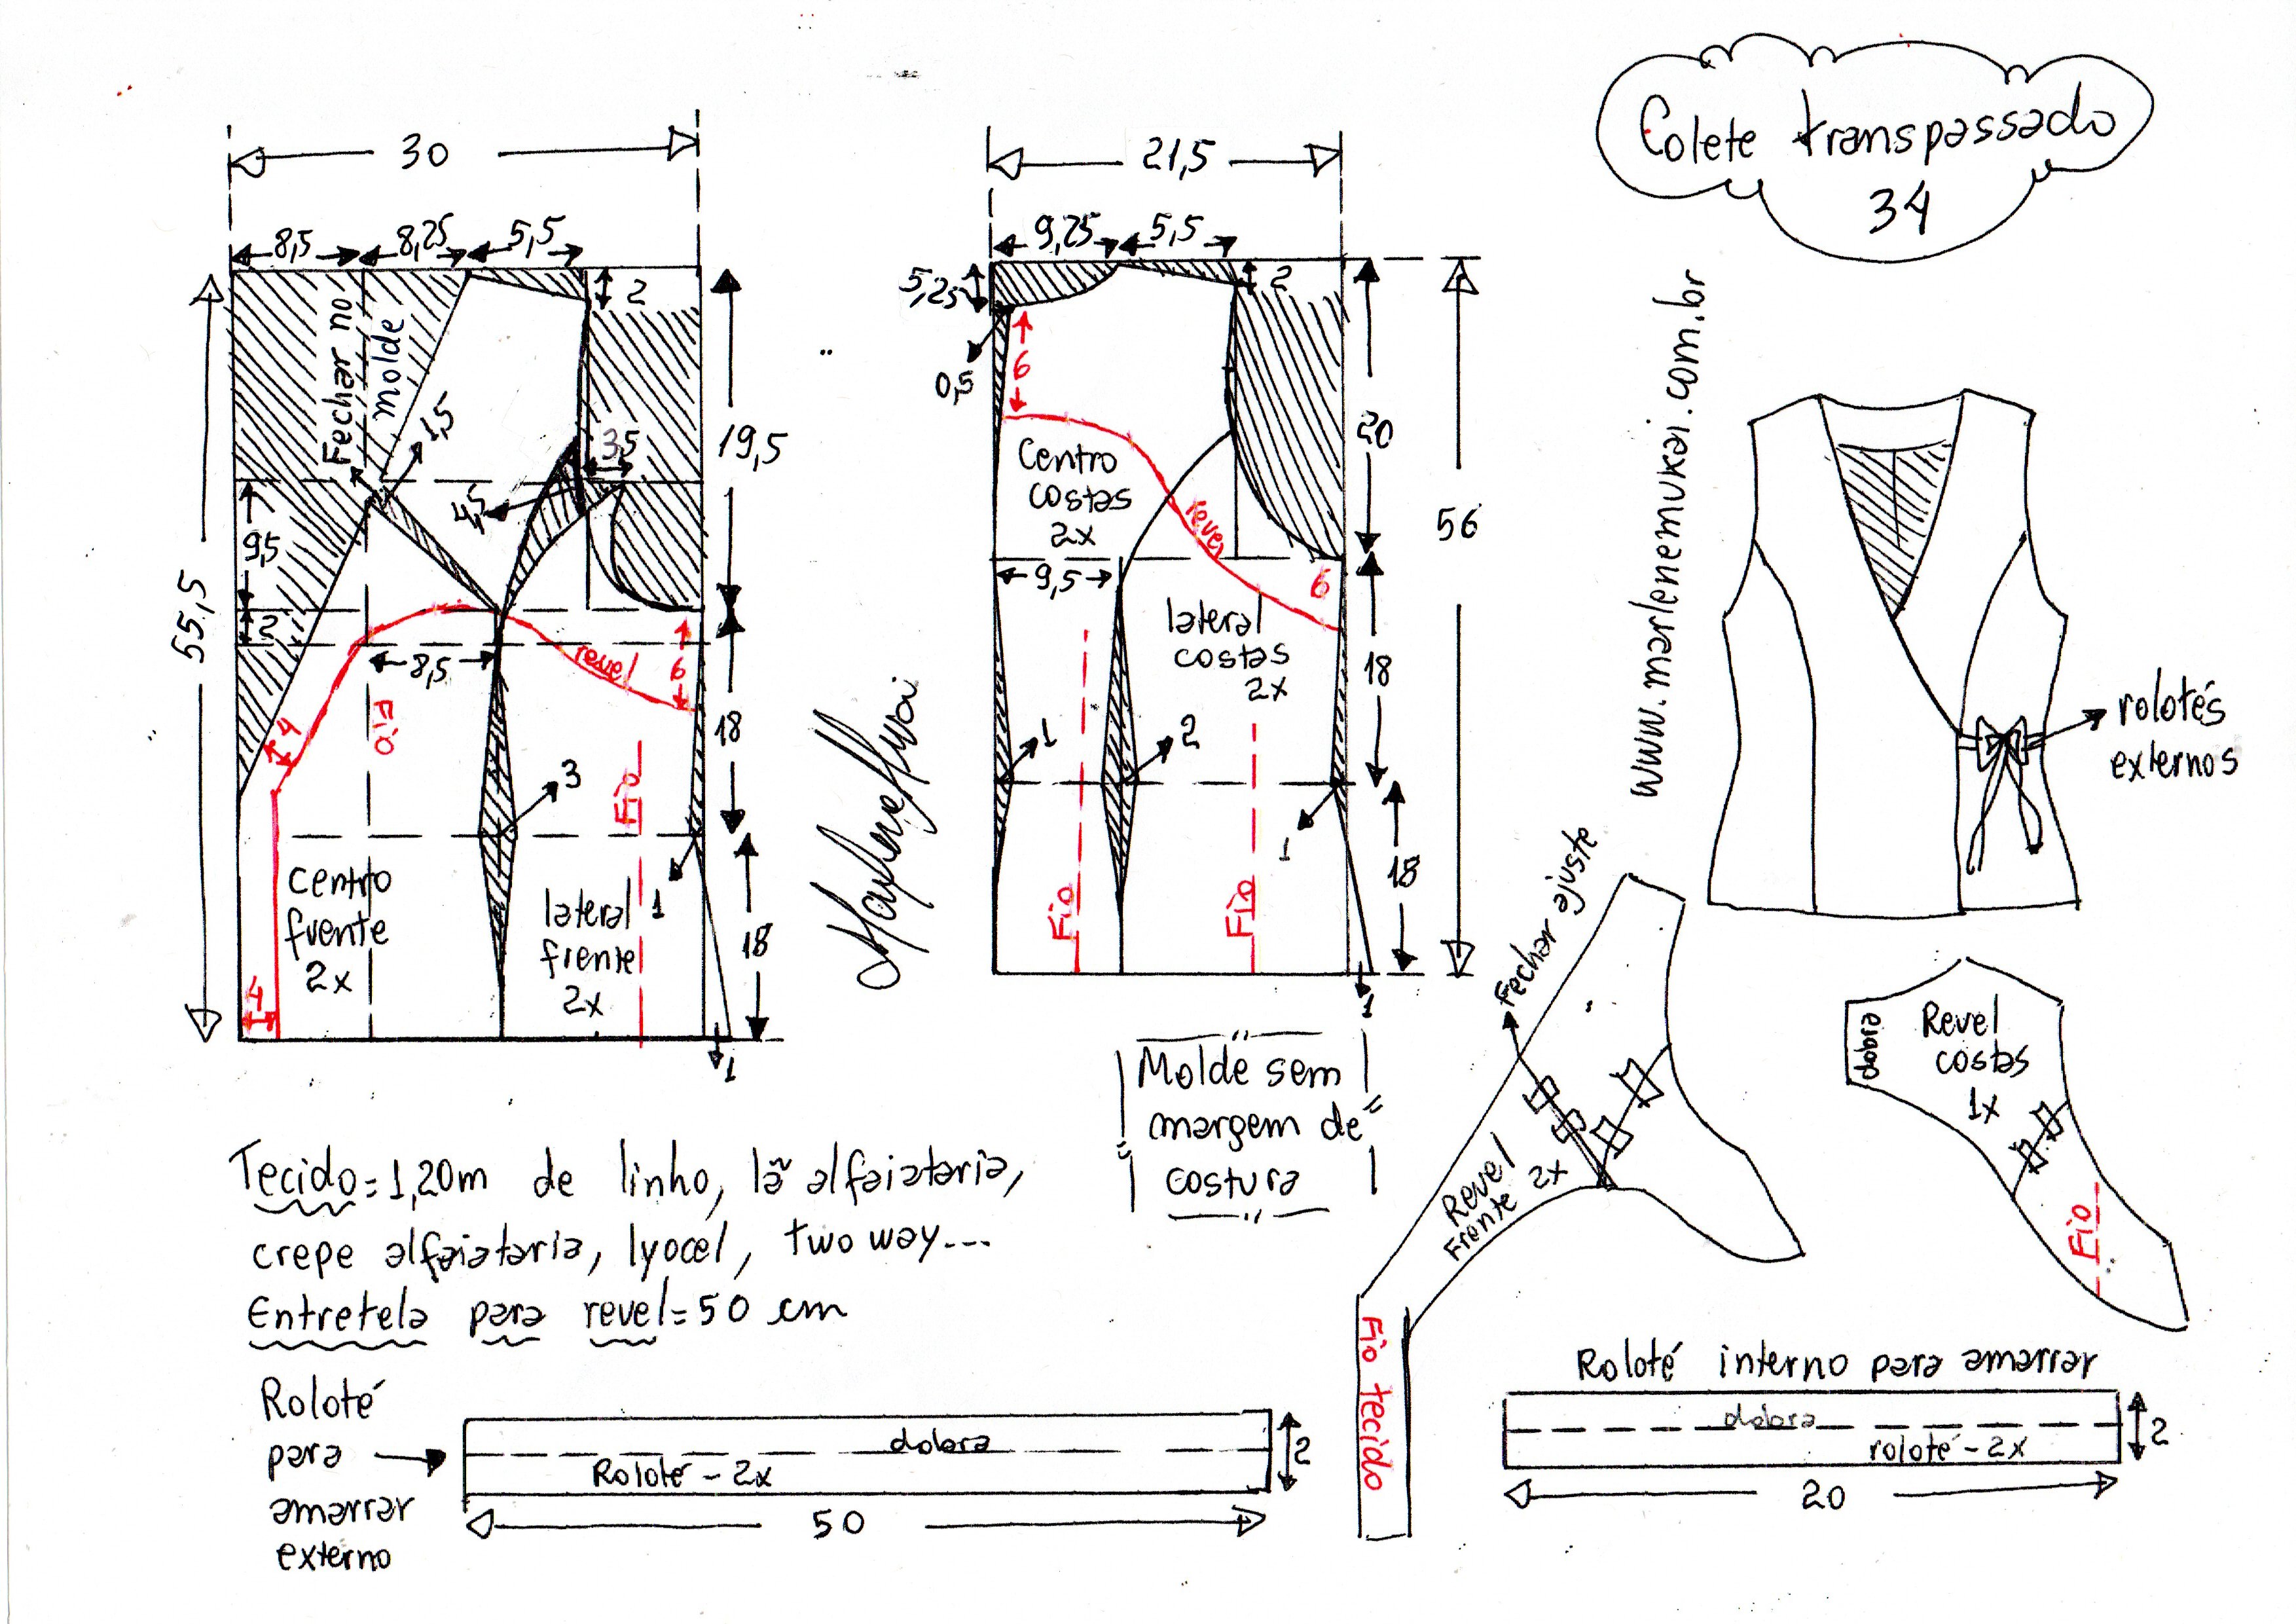 Colete transpassado
34
30
8,5
8,25
5,5
2
Fechar no
molde
1,5
3,5
4,5
19,5
9,5
2
55,5
8,5
revel
6
4
Fio
18
3
Fio
1
centro
frente
2x
lateral
frente
2x
18
4
1
21,5
9,25
5,5
5,25
2
0,5
6
20
Centro
costas
2x
revel
56
9,5
6
lateral
costas
2x
18
1
2
1
Fio
Fio
18
1
Marlene Mukai
www.marlenemukai.com.br
rolotés
externos
Fechar ajuste
Revel
Frente 2x
Fio tecido
dobra
Revel
costas
1x
Fio
Molde sem
margem de
costura
Tecido=1,20m de linho, lã alfaiataria,
crepe alfaiataria, lyocel, two way---
Entretela para revel=50 cm
Roloté
para
amarrar
externo
dobra
Roloté - 2x
2
50
Roloté interno para amarrar
dobra
roloté - 2x
2
20